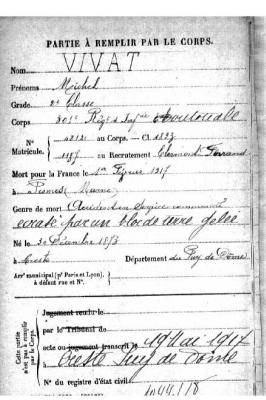 PARTIE À REMPLIR PAR LE CORPS.
Nom VIVAT
Prénoms Michel
Grade 2e Classe
Corps 301e Régt d'Infie
N° Matricule. au Corps. — Cl. 1893
1187 au Recrutement Clermont Ferrand
Mort pour la France le 1er Février 1917
à
Genre de mort Accident en Service commandé
écrasé par un bloc de terre gelée
Né le 30 Décembre 1873
à Creste Département du Puy de Dôme
Arrt municipal (pr Paris et Lyon),
à défaut rue et N°.
Cette partie
n'est pas à remplir
par le Corps.
Jugement rendu le
par le Tribunal de
acte ou jugement transcrit le 19 Mai 1917
à Creste Puy de Dôme
N° du registre d'état civil